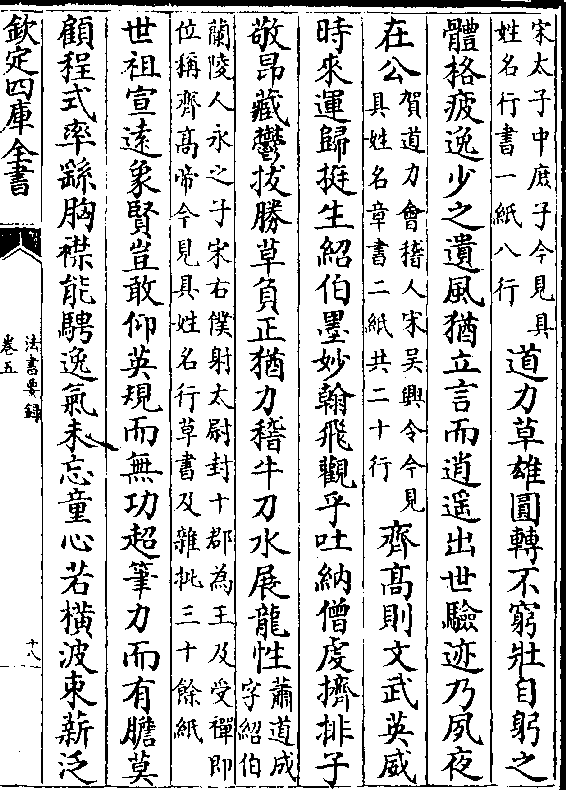 宋太子中庶子今見具
姓名行書一紙八行
道力草雄圓轉不窮壯自躬之
體格疲逸少之遺風猶立言而逍遥出世驗迹乃夙夜
在公
賀道力會稽人宋吴興令今見
具姓名章書二紙共二十行
齊髙則文武英威
時來運歸挺生紹伯墨妙翰飛觀乎吐納僧䖍擠排子
敬昂藏鬱拔勝草負正猶力稽牛刀水展龍性
蕭道成
字紹伯
蘭陵人永之子宋右僕射太尉封十郡為王及受禪即
位稱齊高帝今見具姓名行草書及雜批三十餘紙
世祖宣逺象賢豈敢仰英規而無功超筆力而有膽莫
顧程式率繇胸襟能騁逸氣未忘童心若橫波束薪泛
欽定四庫全書
法書要錄
卷五
十八